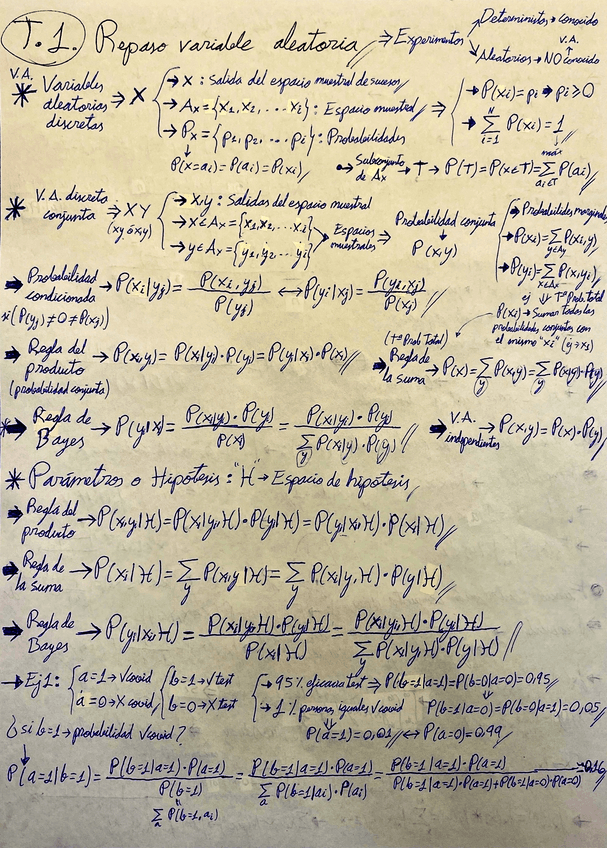 T.1. Repaso variable aleatoria ⇒ Experimentos → Deterministas → conocido
→ Aleatorios → NO conocido
V.A.
V.A.
* Variables aleatorias discretas ⇒ X
→ X : Salida del espacio muestral de sucesos
→ Ax = {x1, x2, ... xi} : Espacio muestral ⇒
→ Px = {p1, p2, ... pi} : Probabilidades
P(x=ai) = P(ai) = P(xi)
→ P(xi) = pi → pi ≥ 0
→ ∑ i=1 P(xi) = 1
Subconjunto de Ax → T → P(T) = P(x∈T) = ∑ ai∈T P(ai)
* V.A. discreta conjunta ⇒ XY
(xy ó x,y)
→ X,Y : Salidas del espacio muestral
→ x∈Ax = {x1, x2, ... xi}
→ y∈Ay = {y1, y2, ... yi}
Espacios muestrales ⇒
Probabilidad conjunta
P(x,y)
→ Probabilidades marginales
→ P(xi) = ∑ y∈Ay P(xi,y)
→ P(yi) = ∑ x∈Ax P(x,yi)
ej ⇓ Tª Prob. total
P(xi) → Sumar todas las probabilidades conjuntas con el mismo "xi" (ẏ → xi)
→ Probabilidad condicionada → P(xi|yj) = P(xi,yj) / P(yj) ↔ P(yi|xj) = P(yi,xj) / P(xj)
si (P(yj) ≠ 0 ≠ P(xj))
→ Regla del producto → P(x,y) = P(x|y)·P(y) = P(y|x)·P(x)
(probabilidad conjunta)
(Tª Prob. Total)
→ Regla de la suma → P(x) = ∑ y P(x,y) = ∑ y P(x|y)·P(y)
→ Regla de Bayes → P(y|x) = P(x|y)·P(y) / P(x) = P(x|y)·P(y) / ∑ y P(x|y)·P(y)
→ V.A. independientes → P(x,y) = P(x)·P(y)
* Parámetros o Hipótesis : "H" → Espacio de hipótesis
→ Regla del producto → P(x,y|H) = P(x|y,H)·P(y|H) = P(y|x,H)·P(x|H)
→ Regla de la suma → P(x|H) = ∑ y P(x,y|H) = ∑ y P(x|y,H)·P(y|H)
→ Regla de Bayes → P(y|x,H) = P(x|y,H)·P(y|H) / P(x|H) = P(x|y,H)·P(y|H) / ∑ y P(x|y,H)·P(y|H)
→ Ej1: { a=1 → √covid { b=1 → √test → 95% eficacia test ⇒ P(b=1|a=1) = P(b=0|a=0) = 0,95
a=0 → X covid b=0 → X test → 1% personas iguales √covid P(b=1|a=0) = P(b=0|a=1) = 0,05
¿si b=1 → probabilidad √covid? P(a=1) = 0,01 ↔ P(a=0) = 0,99
P(a=1|b=1) = P(b=1|a=1)·P(a=1) / P(b=1) = P(b=1|a=1)·P(a=1) / ∑ a P(b=1|ai)·P(ai) = P(b=1|a=1)·P(a=1) / P(b=1|a=1)·P(a=1)+P(b=1|a=0)·P(a=0) = 0,16
∑ a P(b=1,ai)